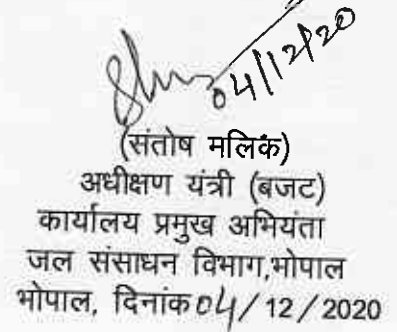 04/12/20
(संतोष मलिक)
अधीक्षण यंत्री (बजट)
कार्यालय प्रमुख अभियंता
जल संसाधन विभाग,भोपाल
भोपाल, दिनांक 04/ 12 / 2020